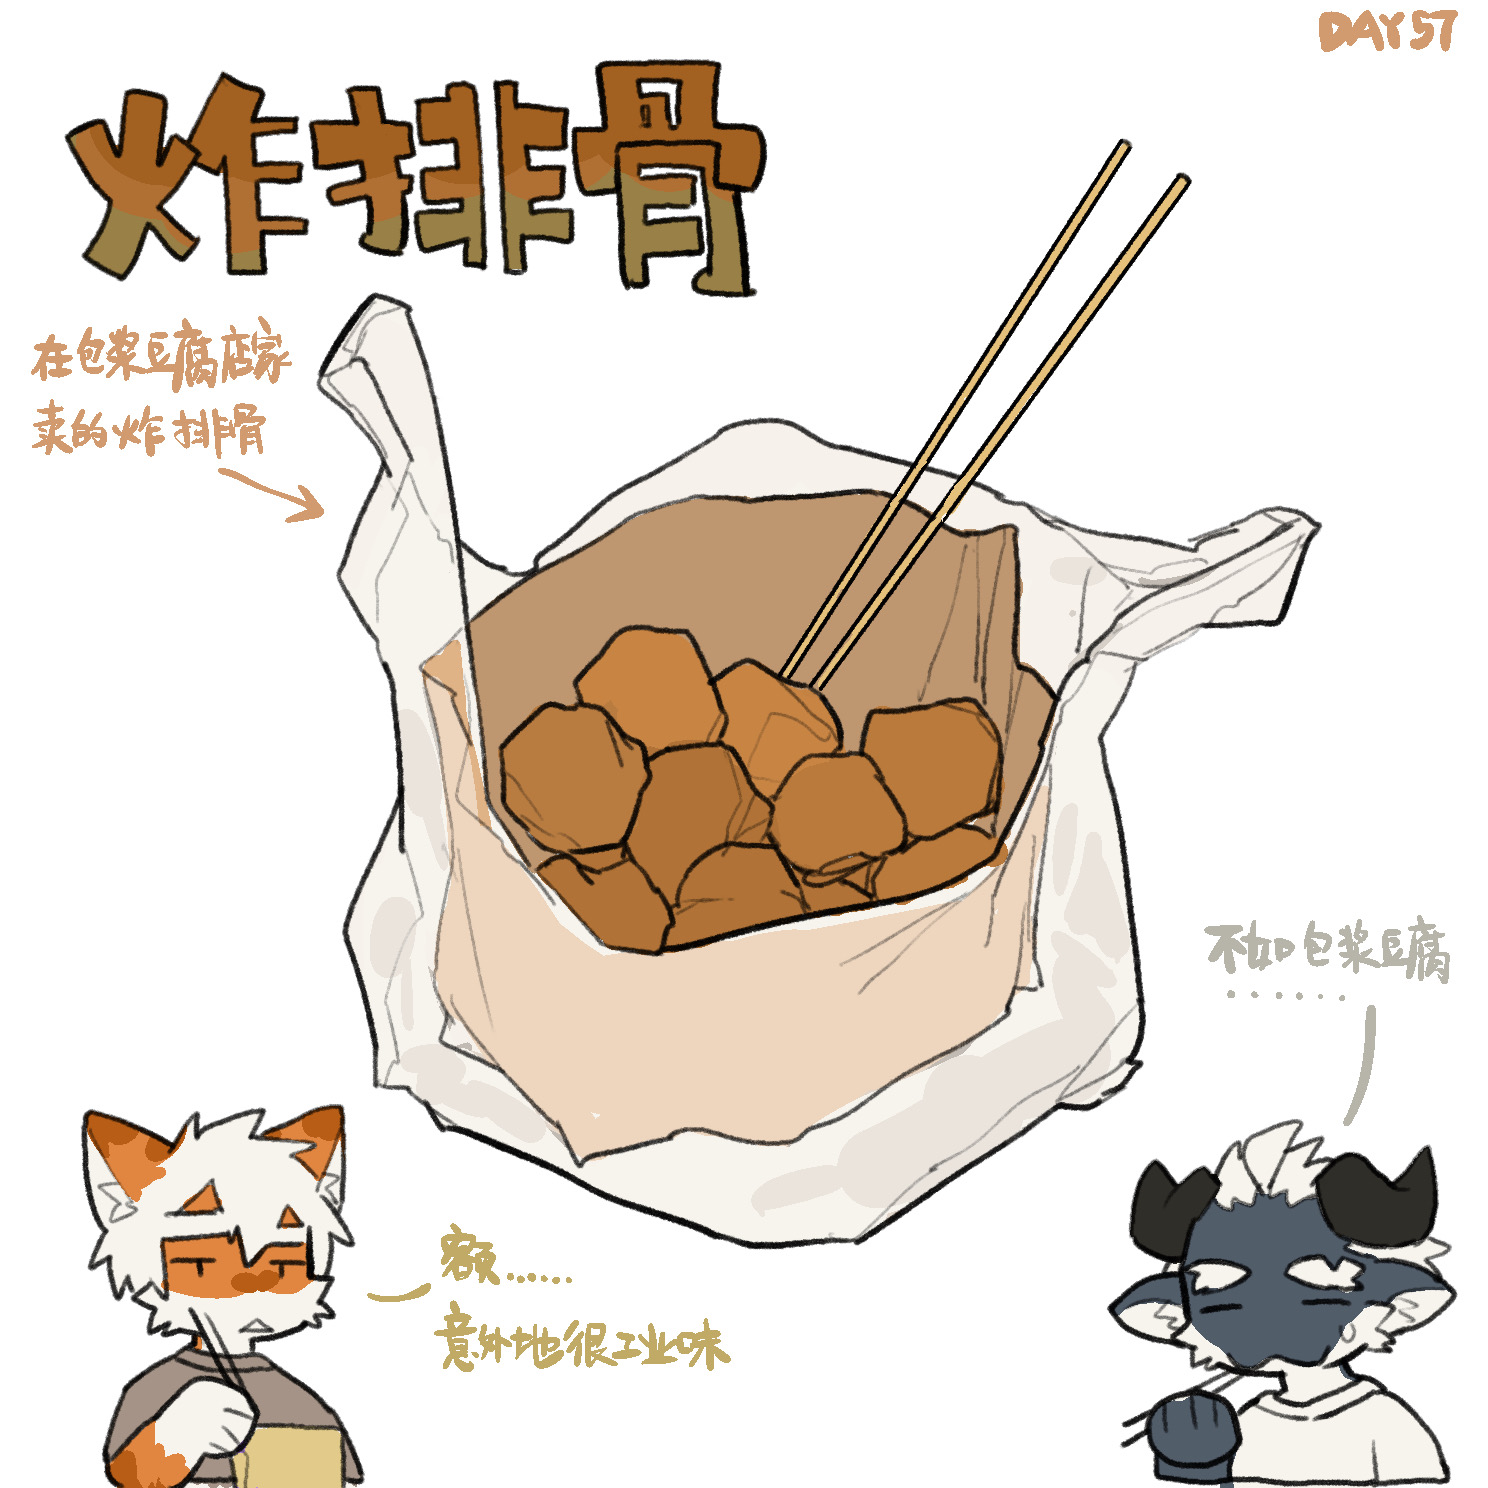 DAY 57
炸排骨
在包浆豆腐店家
卖的炸排骨
不如包浆豆腐
......
额......
意外地很工业味